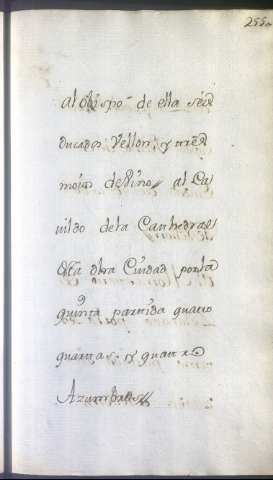 al obispo de ella seis
ducados Vellon, y tres
mois de Vino, al Ca
vildo de la Cathedral
desta otra Ciudad por la
quinta partida quatro
quartas, y quatro
Azumbres